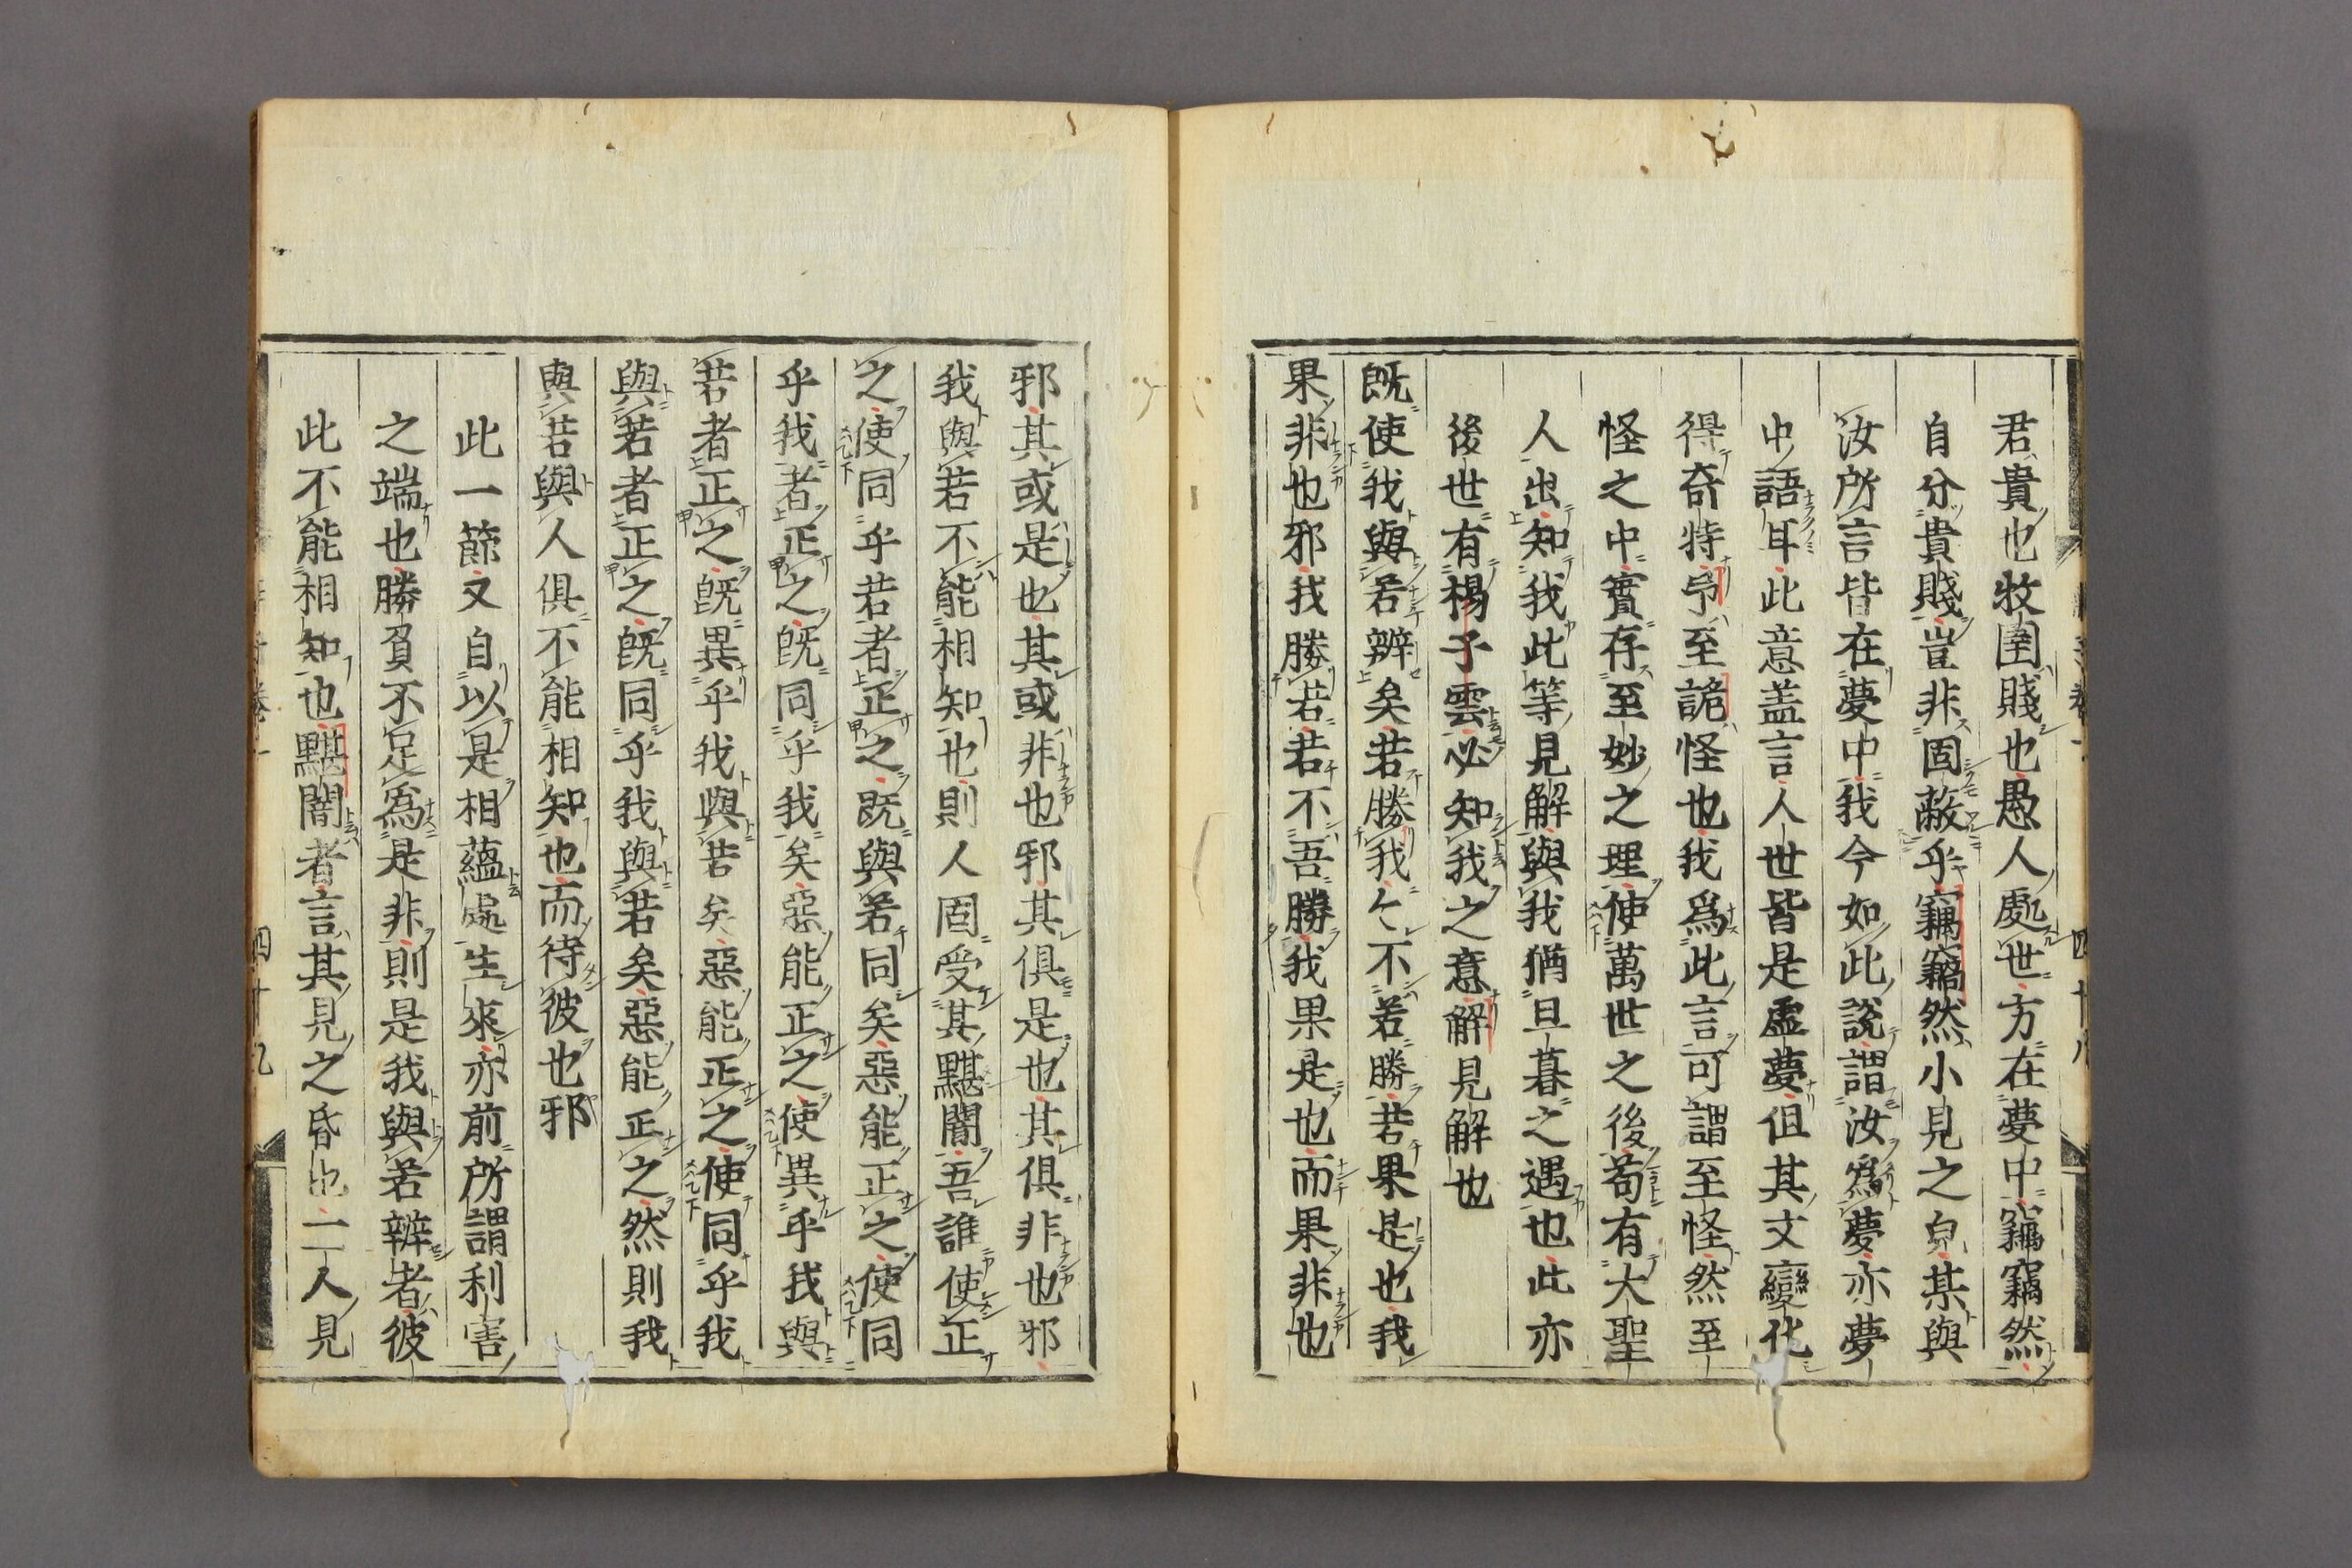 君貴也牧圉賤也愚人處世方在夢中竊竊然
自分貴賤豈非固蔽乎竊竊然小見之皃某與
汝所言皆在夢中我今如此說謂汝爲夢亦夢
中語耳此意盖言人世皆是虛夢但其文變化
得奇特弔至詭怪也我爲此言可謂至怪然至
怪之中實存至妙之理使萬世之後苟有大聖
人出知我此等見解與我猶旦暮之遇也此亦
後世有楊子雲必知我之意解見解也
既使我與若辯矣若勝我々不若勝若果是也我
果非也邪我勝若若不吾勝我果是也而果非也
邪其或是也其或非也邪其俱是也其俱非也邪
我與若不能相知也則人固受其黮闇吾誰使正
之使同乎若者正之既與若同矣惡能正之使同
乎我者正之既同乎我矣惡能正之使異乎我與
若者正之既異乎我與若矣惡能正之使同乎我
與若者正之既同乎我與若矣惡能正之然則我
與若與人俱不能相知也而待彼也邪
此一節又自以是相蘊處生來亦前所謂利害
之端也勝負不足爲是非則是我與若辯者彼
此不能相知也黮闇者言其見之昏也一人見
四十九